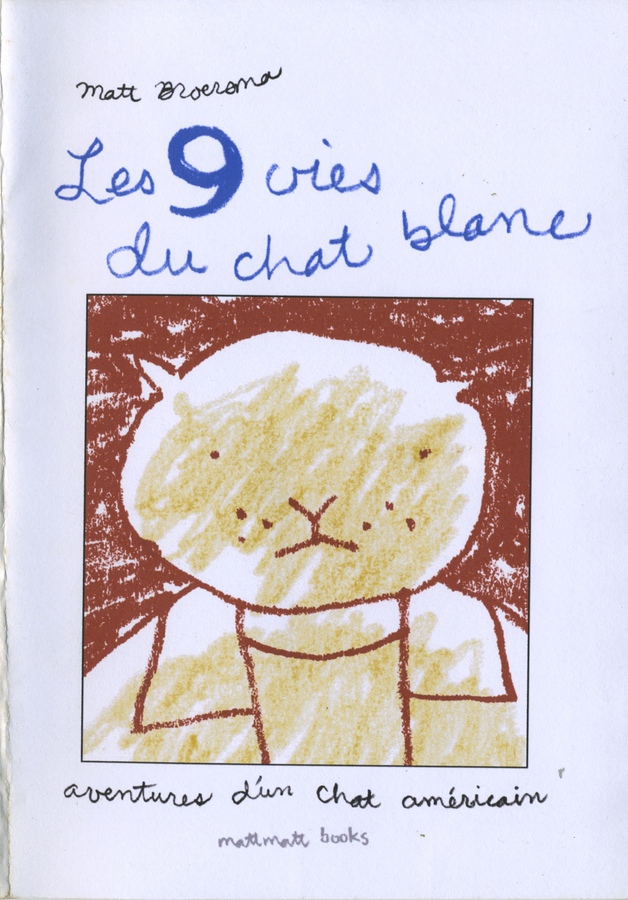 Matt Broersma
Les 9 vies
du chat blanc
aventures d'un chat américain
mattmatt books